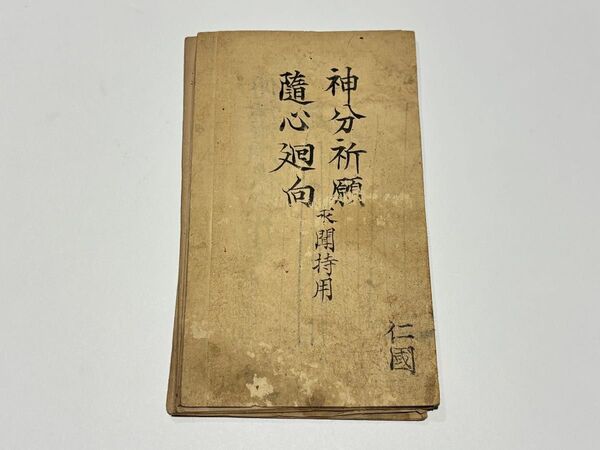 神分祈願
隨心廻向
求聞持用
仁國